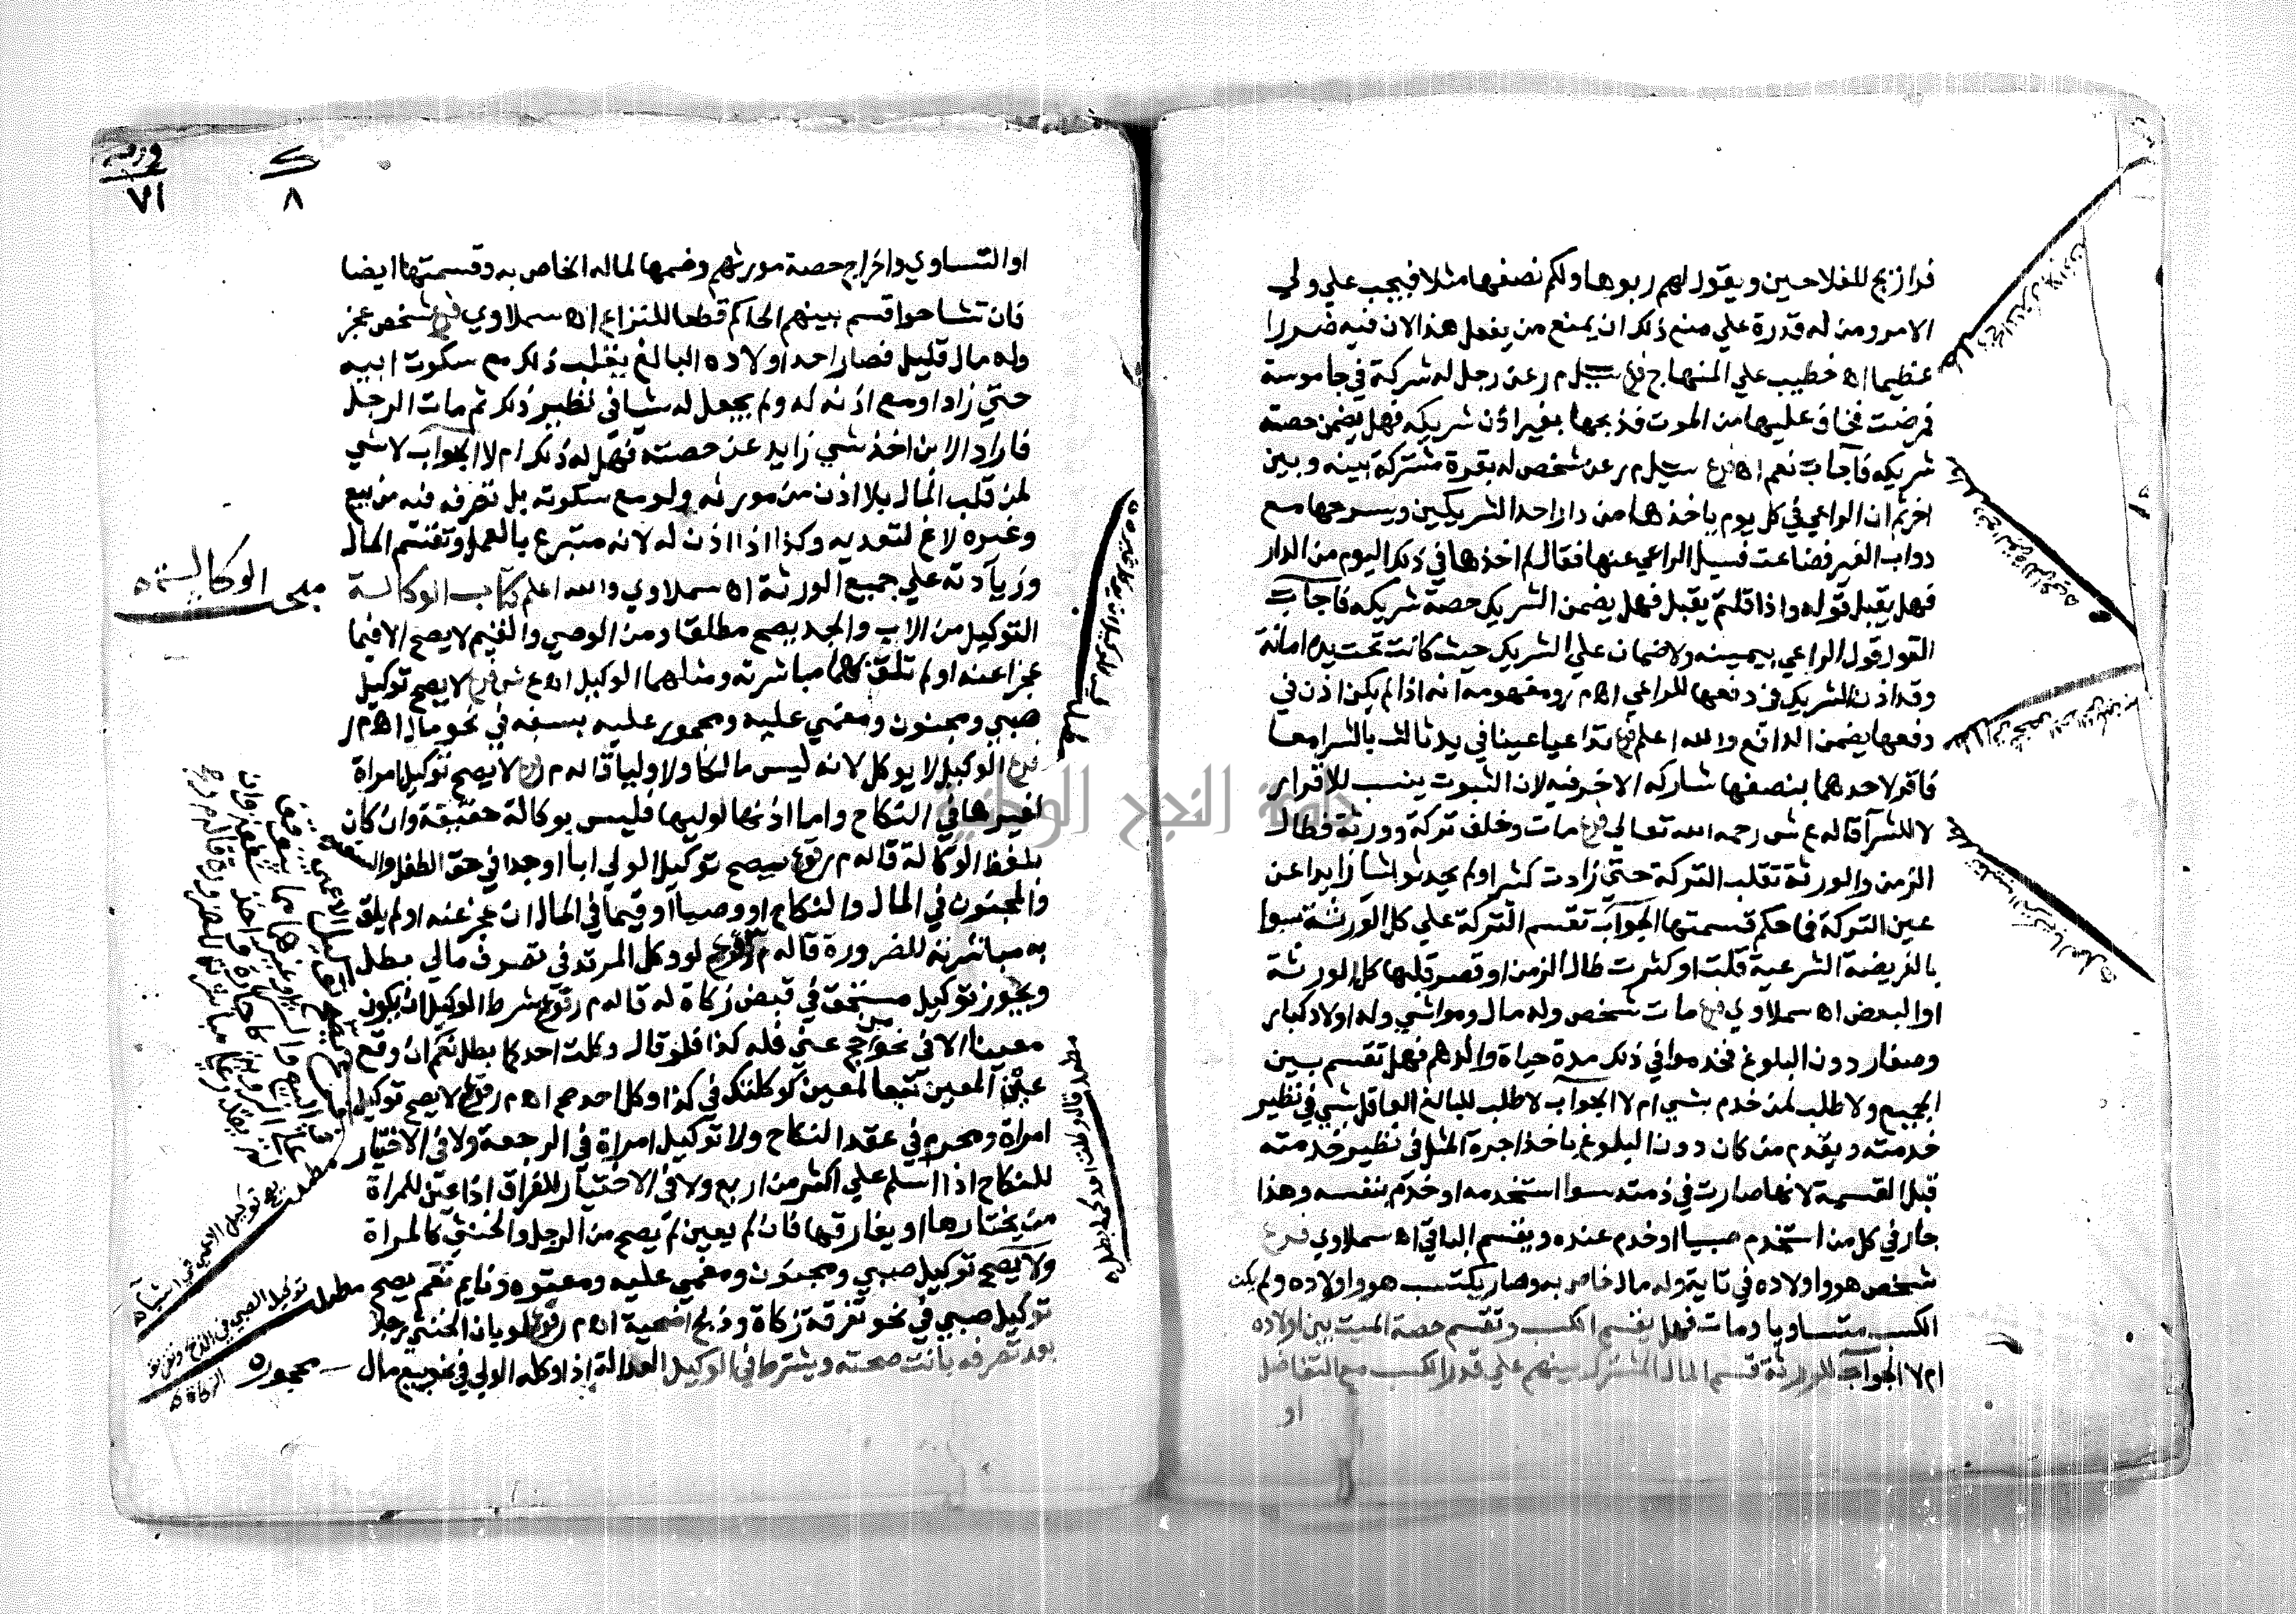 فراريج للفلاحين ويقول لهم ربوها ولكم نصفها مثلا فيجب علي ولي
الامر ومن له قدرة علي منع ذلك ان يمنع من يفعل هذا لان فيه ضررا
عظيما اه خطيب علي المنهاج فرع سيل م ر عن رجل له شركة في جاموسة
فمرضت فخاف عليها من الموت فذبحها بغير اذن شريكه فهل يضمن حصة
شريكه فاجاب نعم اه فرع سيل م ر عن شخص له بقرة مشتركة بينه وبين
اخر ثم ان الراعي في كل يوم ياخذها من دار احد الشريكين ويسرحها مع
دواب الغير فضاعت فسيل الراعي عنها فقال لم اخذها في ذلك اليوم من الدار
فهل يقبل قوله واذا قلتم يقبل فهل يضمن الشريك حصة شريكه فاجاب
القول قول الراعي بيمينه ولا ضمان علي الشريك حيث كانت تحت يده امانة
وقد اذن الشريك في دفعها للراعي اه م ر ومفهومه انه اذا لم يكن اذن في
دفعها يضمن الدافع والله اعلم فرع تداعيا عينا في يد ثالث بالشرا معا
فاقر لاحدهما بنصفها شاركه الاخر فيه لان الثبوت ينسب للاقرار
لا للشرا قاله ع ش رحمه الله تعالي فرع مات وخلف تركة وورثة فطال
الزمن والورثة تقلب التركة حتي زادت كثيرا ولم يحدثوا شيا زايدا عن
عين التركة فما حكم قسمتها الجواب تقسم التركة علي كل الورثة سوا
بالفريضة الشرعية قلت او كثرت طال الزمن او قصر قلبها كل الورثة
او البعض اه سملاوي فرع مات شخص وله مال ومواشي وله اولاد كبار
وصغار دون البلوغ فخدموا في ذلك مدة حياة والدهم فهل تقسم بين
الجميع ولا طلب لمن خدم بشي ام لا الجواب لا طلب للبالغ العاقل بشي في نظير
خدمته ويقدم من كان دون البلوغ ياخذ اجرة المثل في نظير خدمته
قبل القسمة لانها صارت في ذمته سوا استخدمه او خدم بنفسه وهذا
جار في كل من استخدم صبيا او خدم عنده ويقسم الباقي اه سملاوي فرع
شخص هو واولاده في وله مال خاص به وصار يكتسب هو واولاده ولم يكن
الكسب متساويا ومات فهل يقسم الكسب وتقسم حصة الميت بين اولاده
ام لا الجواب للورثة قسم المال المشترك بينهم علي قدر الكسب مع التفاضل
او
ورقة
٧١
ك
٨
او التساوي واخراج حصة مورثهم وضمها لماله الخاص به وقسمتها ايضا
فان تشاحوا قسم بينهم الحاكم قطعا للنزاع اه سملاوي فرع شخص عجز
وله مال قليل فصار احد اولاده البالغ يقلب ذلك مع سكوت ابيه
حتي زاد او مع اذنه له ولم يجعل له شيا في نظير ذلك ثم مات الرجل
فاراد الابن اخذ شي زايد عن حصته فهل له ذلك ام لا الجواب لا شي
لمن قلب المال بلا اذن من مورثه ولو مع سكوته بل تصرفه فيه من بيع
وغيره لاغ لتعديه وكذا اذا اذن له لانه متبرع بالعمل وتقسم المال
وزيادته علي جميع الورثة اه سملاوي والله اعلم كتاب الوكالة
التوكيل من الاب والجد يصح مطلقا ومن الوصي والقيم لا يصح الا فيما
عجزا عنه او لم تلق بهما مباشرته ومثلهما الوكيل اه ع ش فرع لا يصح توكيل
صبي ومجنون ومغمي عليه ومحجور عليه بسفه في نحو مال اه م ر
فرع الوكيل لا يوكل لانه ليس مالكا ولا وليا قاله م ر فرع لا يصح توكيل امراة
لغيرها في النكاح واما اذنها لوليها فليس بوكالة حقيقة وان كان
بلفظ الوكالة قاله م ر فرع يصح توكيل الولي ابا او جدا في حق الطفل والسفيه
والمجنون في المال والنكاح او وصيا او قيما في المال ان عجز عنه او لم يلق
به مباشرته للضرورة قاله م ر فرع لو وكل المرتد في تصرف مالي بطل
ويجوز توكيل مستحق في قبض زكاة له قاله م ر فرع شرط الوكيل ان يكون
معينا الا في نحو من حج عني فله كذا فلو قال وكلت احدكما بطل نعم ان وقع
غير المعين تبعا لمعين كوكلتك في كذا وكل احد صح اه م ر فرع لا يصح توكيل
امراة ومحرم في عقد النكاح ولا توكيل امراة في الرجعة ولا في الاختيار
للنكاح اذا اسلم علي اكثر من اربع ولا في الاختيار للفراق اذا عين للمراة
من يختارها او يفارقها فان لم يعين لم يصح من الرجل والخنثي كالمراة
ولا يصح توكيل صبي ومجنون ومغمي عليه ومعتوه ونايم نعم يصح
توكيل صبي في نحو تفرقة زكاة وذبح اضحية اه م ر فرع لو بان الخنثي رجلا
بعد تصرفه بانت صحته ويشترط في الوكيل العدالة اذا وكله الولي في نحو بيع مال
محجوره
مبحث الوكالة
مطلب قال وكلت احدكما بطل
مطلب توكيل الاعمي في اشيا
مطلب توكيل الصبي في الذبح وتفرقة
الزكاة